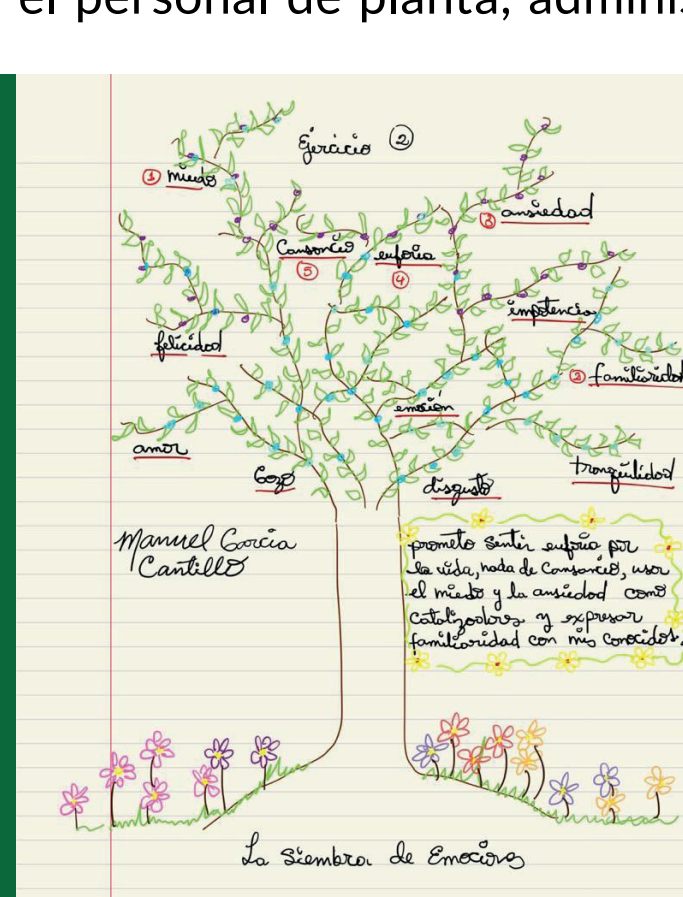 el personal de planta, adminis
Ejercicio 2
1 miedo
3 ansiedad
Cansancio euforia
5 4
impotencia
felicidad
2 familiaridad
emoción
amor
Gozo
disgusto
tranquilidad
Manuel Garcia
Cantillo
prometo sentir euforia por
la vida, nada de cansancio, usar
el miedo y la ansiedad como
catalizadores y expresar
familiaridad con mis conocidos.
La Siembra de Emociones